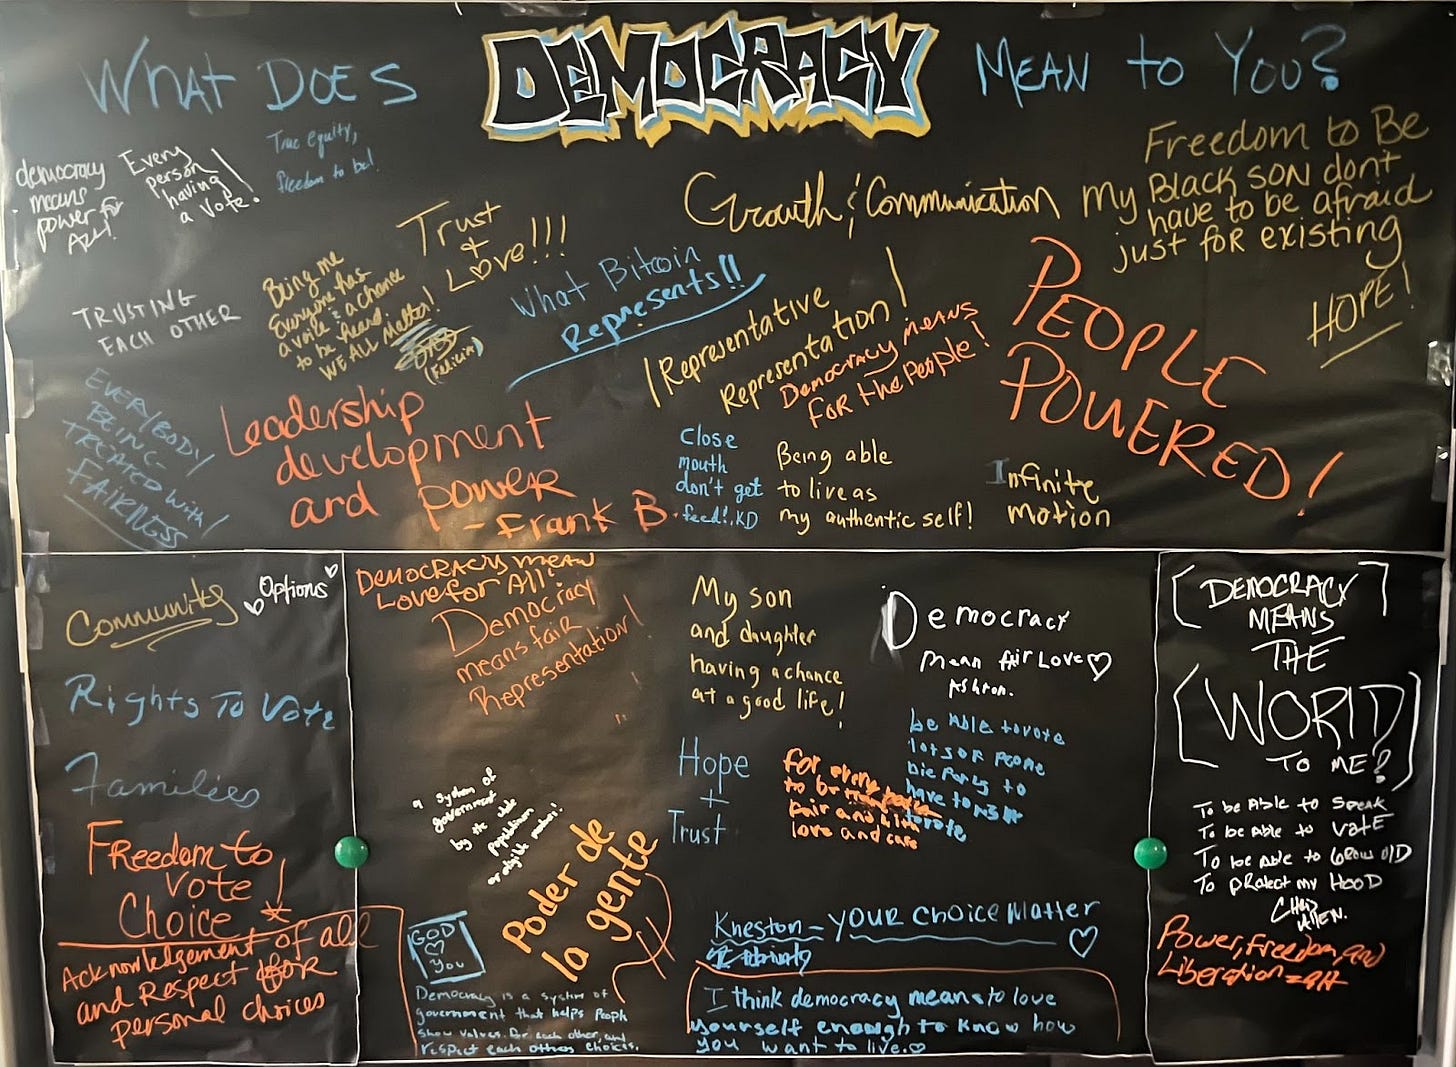 WHAT DOES DEMOCRACY MEAN to YOU?
democracy
means
power for
ALL!
Every
person
having
a vote!
True equity,
freedom to be!
Trust
+
Love!!!
Growth & Communication
Freedom to Be
my Black SON don't
have to be afraid
just for existing
HOPE!
TRUSTING
EACH OTHER
Being me
Everyone has
a voice & a chance
to be heard.
WE ALL Matter!
(Felicia)
What Bitcoin
Represents!!
Representative
Representation!
Democracy MEANS
FOR the People!
PEOPLE
POWERED!
EVERYBODY
BEING
TREATED with
FAIRNESS
Leadership
development
and power
- Frank B.
Close
mouth
don't get
feed!. KD
Being able
to live as
my authentic self!
Infinite
motion
Community
Options
Rights To Vote
Families
Freedom to
Vote
Choice
Acknowledgement of all
and Respect for
personal choices
Democracy mean
Love for All!
Democracy
means fair
Representation!
a system of
government
by the whole
population
or eligible members!
Poder de
la gente
GOD
you
Democracy is a system of
government that helps People
show values for each other, and
respect each others choices.
My son
and daughter
having a chance
at a good life!
Hope
+
Trust
Democracy
Mean fair Love
Ashton.
be Able to vote
lots of people
Die for us to
have
to vote
for every
to be
fair and with
love and care
Kneston - YOUR CHOICE Matter
I think democracy means to love
yourself enough to know how
you want to live.
DEMOCRACY
MEANS
THE
WORLD
TO ME?
To be Able to Speak
To be Able to VOTE
To be Able to Grow OlD
To pRotect my HOOD
CHAD
Allen.
Power, Freedom, and
Liberation =